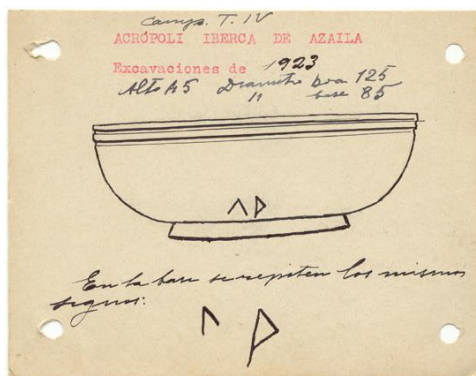 Camp. T. IV
ACRÓPOLI IBERCA DE AZAILA
Excavaciones de 1923
Alto 45 Diametro boca 125
" base 85
𐌡𐌓
En la base se repiten los mismos
signos: